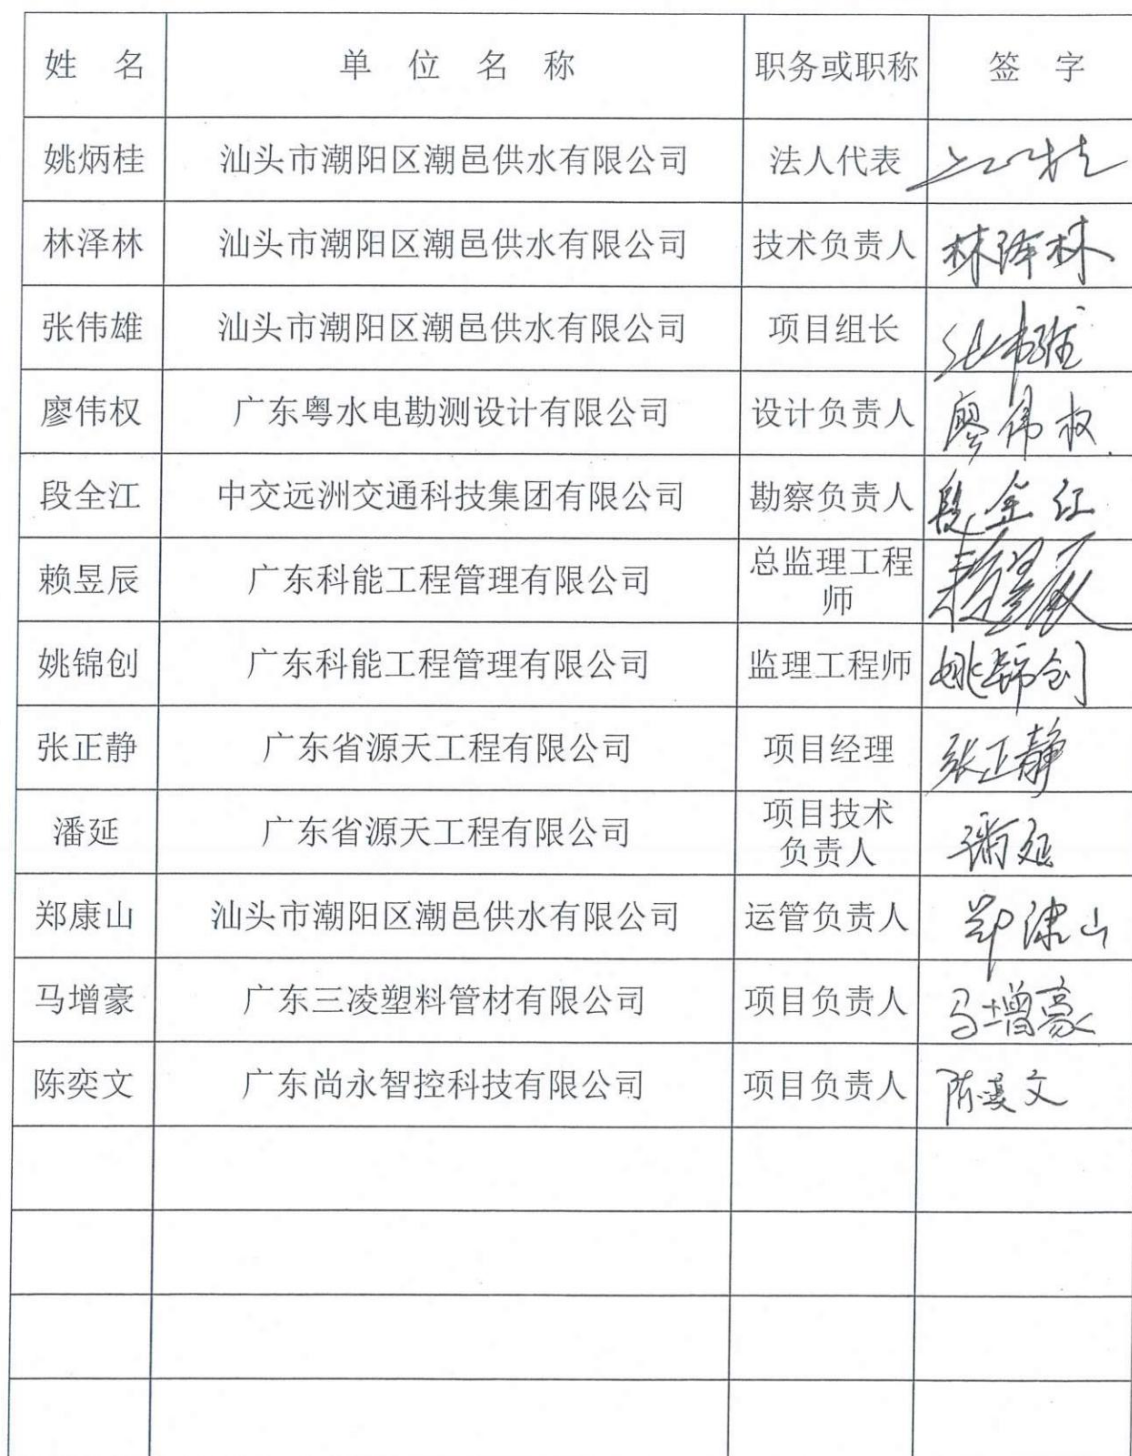 姓 名 单 位 名 称 职务或职称 签 字
姚炳桂 汕头市潮阳区潮邑供水有限公司 法人代表
林泽林 汕头市潮阳区潮邑供水有限公司 技术负责人 林泽林
张伟雄 汕头市潮阳区潮邑供水有限公司 项目组长
廖伟权 广东粤水电勘测设计有限公司 设计负责人 廖伟权
段全江 中交远洲交通科技集团有限公司 勘察负责人 段全江
赖昱辰 广东科能工程管理有限公司 总监理工程
师
姚锦创 广东科能工程管理有限公司 监理工程师 姚锦创
张正静 广东省源天工程有限公司 项目经理 张正静
潘延 广东省源天工程有限公司 项目技术
负责人 潘延
郑康山 汕头市潮阳区潮邑供水有限公司 运管负责人 郑康山
马增豪 广东三凌塑料管材有限公司 项目负责人 马增豪
陈奕文 广东尚永智控科技有限公司 项目负责人 陈奕文